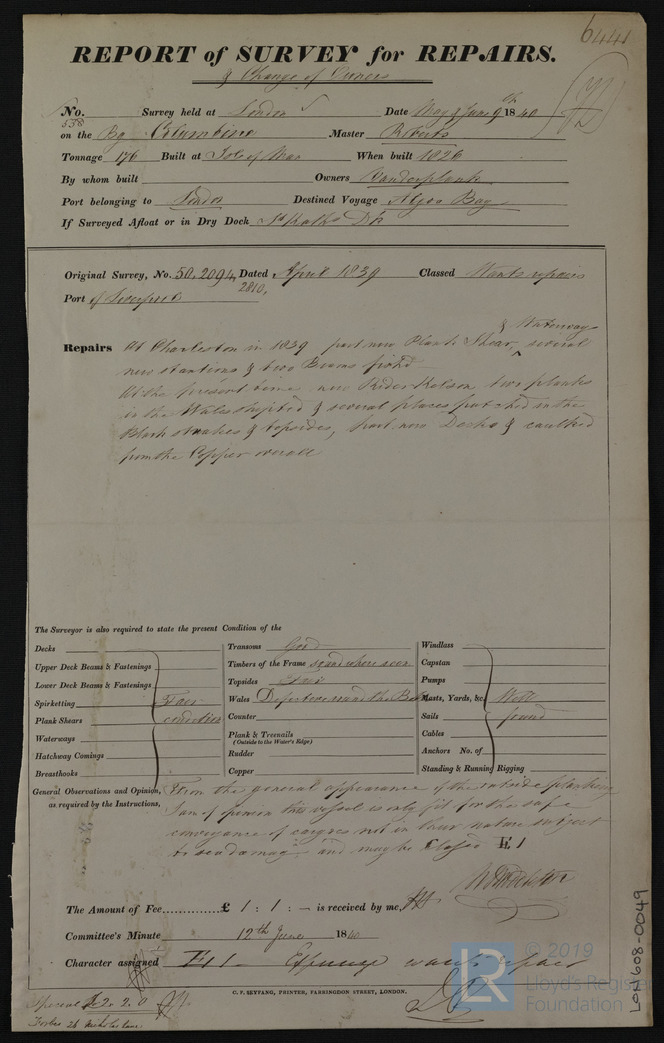 6441
REPORT of SURVEY for REPAIRS.
& Change of Owners
No. 538 Survey held at London Date May & June 9th 1840
on the Bg Columbine Master Roberts
Tonnage 176 Built at Isle of Man When built 1826
By whom built Owners Vanderplank
Port belonging to London Destined Voyage Algoa Bay
If Surveyed Afloat or in Dry Dock St Kaths Dk
Original Survey, No. 50, 2094, Dated April 1839 Classed Wants repairs
2810,
Port of Liverpool
& Waterways
Repairs At Charleston in 1839 part new Plank Shear, several
new stantions & two Beams fixed
At the present time new Rider Kelson two planks
in the Wales shifted & several places patched in the
Black strakes & topsides, part new Decks & caulked
from the Copper overall
The Surveyor is also required to state the present Condition of the
Decks Transoms Good Windlass
Upper Deck Beams & Fastenings Timbers of the Frame sound where seen Capstan
Lower Deck Beams & Fastenings Topsides Fair Pumps
Spirketting Fair Wales Defective round the Masts, Yards, &c. Well
Plank Shears condition Counter Sails found
Waterways Plank & Treenails Cables
(Outside to the Water's Edge)
Hatchway Comings Rudder Anchors No. of
Breasthooks Copper Standing & Running Rigging
General Observations and Opinion, From the general appearance of the outside planking
as required by the Instructions, I am of opinion this vessel is only fit for the safe
conveyance of cargoes not in their nature subject
to seadamage and may be Classed E 1
The Amount of Fee £ 1 : 1 : — is received by me,
Committee's Minute 12th June 1840
Character assigned E 1 - wants repair
C. F. SEYFANG, PRINTER, FARRINGDON STREET, LONDON.
Special £2.2.0
Forbes 26 Nicholas Lane
LON 608-0049
LR © 2019
Lloyd's Register
Foundation